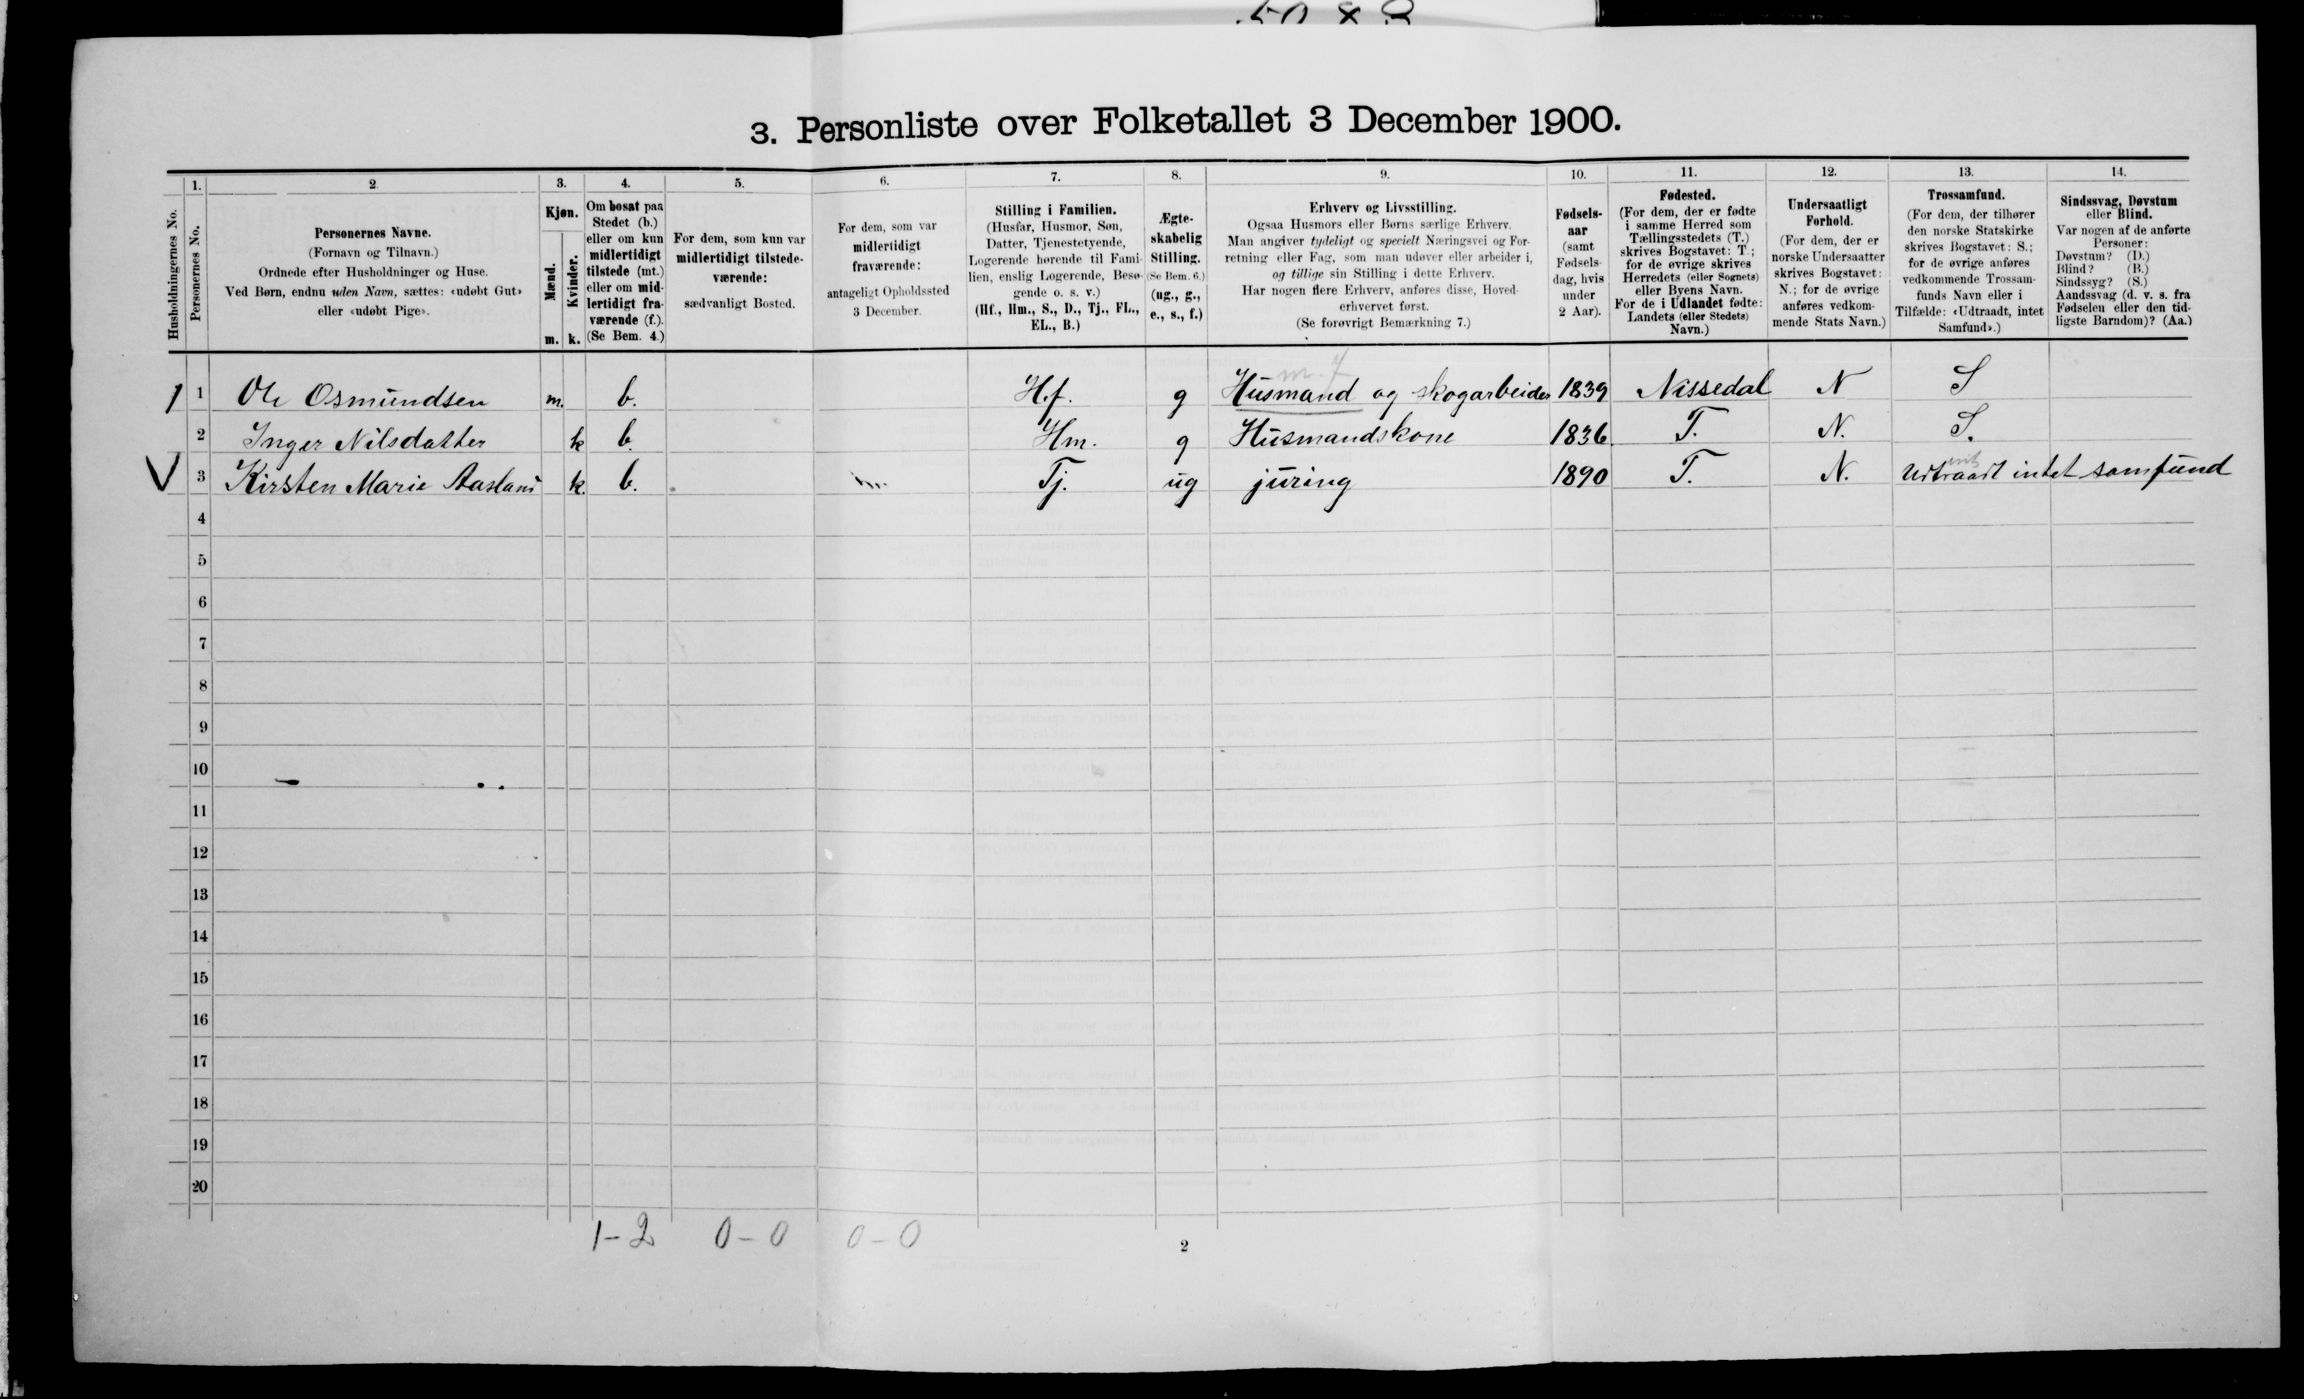 3. Personliste over Folketallet 3 December 1900.
Husholdningernes No.
1.
Personernes No.
2.
Personernes Navne.
(Fornavn og Tilnavn.)
Ordnede efter Husholdninger og Huse.
Ved Børn, endnu uden Navn, sættes: «udøbt Gut»
eller «udøbt Pige».
3.
Kjøn.
Mænd.
Kvinder.
m. k.
4.
Om bosat paa
Stedet (b.)
eller om kun
midlertidigt
tilstede (mt.)
eller om mid-
lertidigt fra-
værende (f.).
(Se Bem. 4.)
5.
For dem, som kun var
midlertidigt tilstede-
værende:
sædvanligt Bosted.
6.
For dem, som var
midlertidigt
fraværende:
antageligt Opholdssted
3 December.
7.
Stilling i Familien.
(Husfar, Husmor, Søn,
Datter, Tjenestetyende,
Logerende hørende til Fami-
lien, enslig Logerende, Besø-
gende o. s. v.)
(Hf., Hm., S., D., Tj., FL.,
EL., B.)
8.
Ægte-
skabelig
Stilling.
(Se Bem. 6.)
(ug., g.,
e., s., f.)
9.
Erhverv og Livsstilling.
Ogsaa Husmors eller Børns særlige Erhverv.
Man angiver tydeligt og specielt Næringsvei og For-
retning eller Fag, som man udøver eller arbeider i,
og tillige sin Stilling i dette Erhverv.
Har nogen flere Erhverv, anføres disse, Hoved-
erhvervet først.
(Se forøvrigt Bemærkning 7.)
10.
Fødsels-
aar
(samt
Fødsels-
dag, hvis
under
2 Aar).
11.
Fødested.
(For dem, der er fødte
i samme Herred som
Tællingsstedets (T.)
skrives Bogstavet: T.;
for de øvrige skrives
Herredets (eller Sognets)
eller Byens Navn.
For de i Udlandet fødte:
Landets (eller Stedets)
Navn.)
12.
Undersaatligt
Forhold.
(For dem, der er
norske Undersaatter
skrives Bogstavet:
N.; for de øvrige
anføres vedkom-
mende Stats Navn.)
13.
Trossamfund.
(For dem, der tilhører
den norske Statskirke
skrives Bogstavet: S.;
for de øvrige anføres
vedkommende Trossam-
funds Navn eller i
Tilfælde: «Udtraadt, intet
Samfund».)
14.
Sindssvag, Døvstum
eller Blind.
Var nogen af de anførte
Personer:
Døvstum? (D.)
Blind? (B.)
Sindssyg? (S.)
Aandssvag (d. v. s. fra
Fødselen eller den tid-
ligste Barndom)? (Aa.)
1 1 Ole Osmundsen m. b. H.f. g Husmand og skogarbeider 1839 Nissedal N S
2 Inger Nilsdatter k b. Hm. g Husmandskone 1836 T. N. S.
3 Kirsten Marie Aasland k. b. Tj. ug juring 1890 T. N. Udtraadt intet samfund
4
5
6
7
8
9
10
11
12
13
14
15
16
17
18
19
20
1-2 0-0 0-0
2